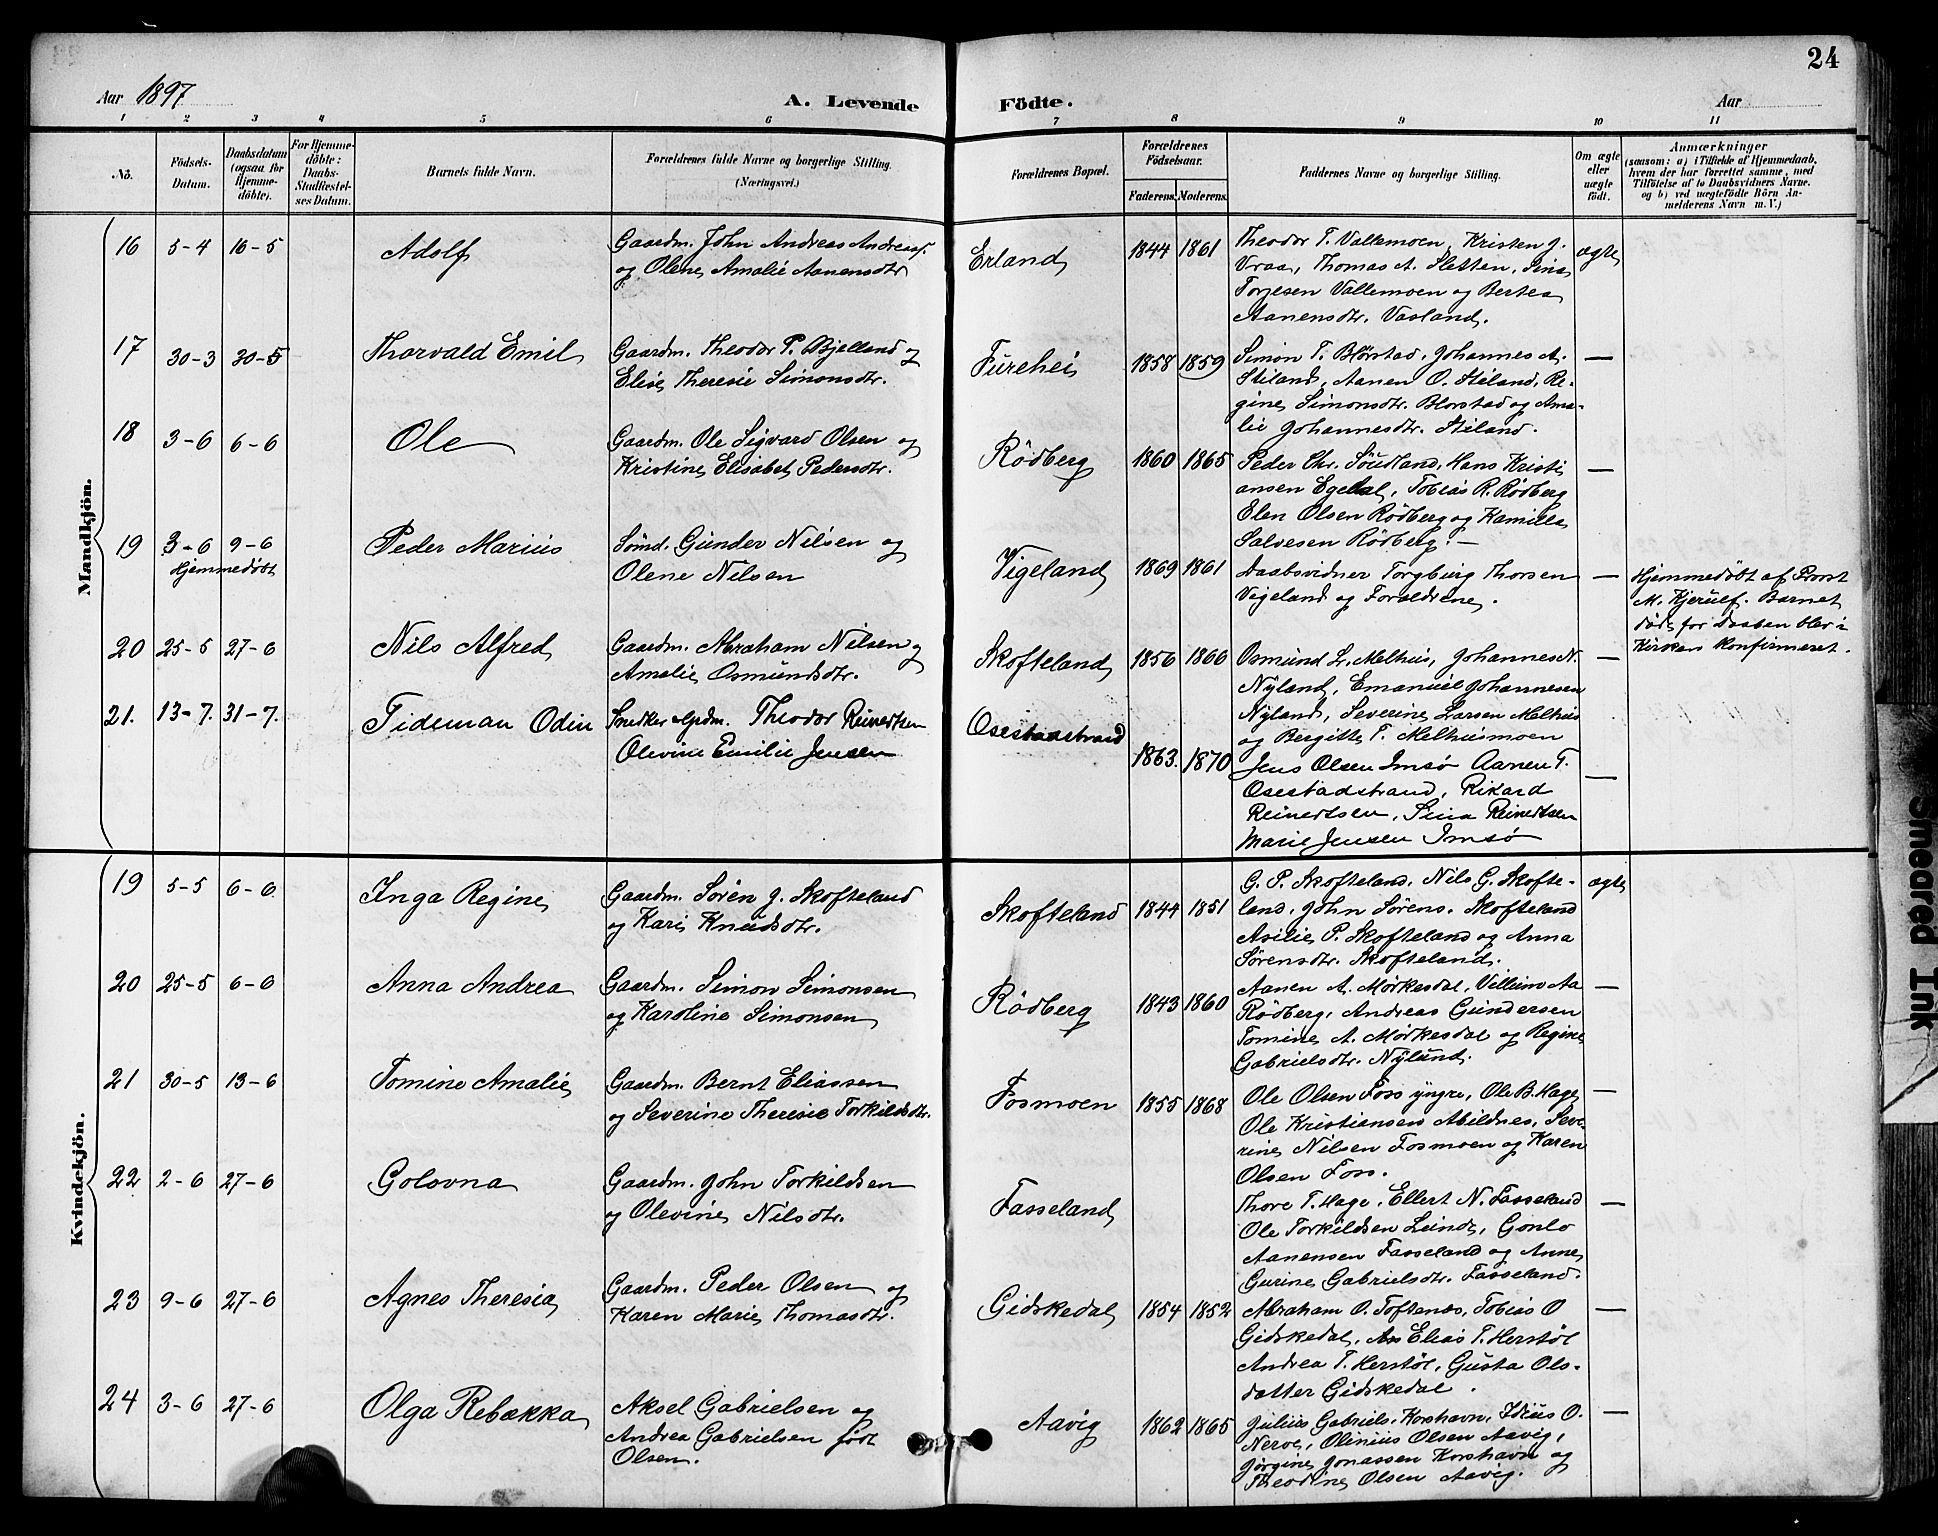 24
Aar 1897
A. Levende Födte.
Aar
1 2 3 4 5 6 7 8 9 10 11
No.
Födsels-Datum.
Daabsdatum (ogsaa for Hjemme-döbte).
For Hjemme-döbte: Daabs-Stadfæstel-ses Datum.
Barnets fulde Navn.
Forældrenes fulde Navne og borgerlige Stilling. (Næringsvei.)
Forældrenes Bopæl.
Forældrenes Födselsaar.
Faderens. Moderens.
Faddernes Navne og borgerlige Stilling.
Om ægte eller uægte födt.
Anmærkninger
(saasom: a) i Tilfælde af Hjemmedaab, hvem der har forrettet samme, med Tilföielse af to Daabsvidners Navne, og b) ved uægtefödte Börn An-melderens Navn m. V.)
Mandkjön.
16 5-4 16-5 Adolf
Gaardm. John Andreas Andreass.
og Olene Amalie Aanensdtr
Erland 1844 1861
Theodor T. Vallemoen, Kristen J.
Vraa, Thomas A. Sletten, Sina
Torjesen Vallemoen og Bertea
Aanensdtr. Vasland.
ægte
17 30-3 30-5 Thorvald Emil
Gaardm. Theodor P. Bjelland og
Elise Theresie Simonsdtr.
Furehei 1858 1859
Simon T. Blørstad, Johannes A.
Stiland, Aanen O. Stiland, Re-
gine Simonsdtr. Blorstad og Ama-
lie Johannesdtr. Stiland.
—
18 3-6 6-6 Ole
Gaardm. Ole Sigvard Olsen og
Kristine Elisabet Pedersdtr.
Rödberg 1860 1865
Peder Chr. Söudland, Hans Kristi
ansen Egedal, Tobias R. Rödberg
Elen Olsen Rödberg og Kamilla
Salvesen Rödberg. —
—
19 3-6 9-6 Peder Marius
Hjemmedöbt
Sömd. Gunder Nilsen og
Olene Nilsen
Vigeland 1869 1861
Daabsvidner Torgburg Thorsen
Vigeland og Forældrene.
—
Hjemmedöbt af Provst
M. Kjerulf. Barnet
död, for Daaben blev i
Kirken konfirmeret.
20 25-5 27-6 Nils Alfred
Gaardm. Abraham Nilsen og
Amalie Osmundsdtr.
Skofteland 1856 1866
Osmund L. Melhus, Johannes N.
Nyland, Emanuel Johannesen
Nyland, Severine Larsen Melhus
og Bergitte T. Melhusmoen
—
21. 13-7. 31-7. Tideman Odin
Snedker & Grdm. Theodor Reinertsen
Olevine Emilie Jensen
Osestadstrand 1863. 1870
Jens Olsen Imsø Aanen T.
Osestadstrand, Rikard
Reinertsen, Sina Reinertsen
Marie Jensen Imsø
—
Kvindekjön.
19 5-5 6-6 Inga Regine
Gaardm. Sören J. Skofteland
og Kari Knudsdtr.
Skofteland 1844 1851
G. P. Skofteland, Nils G. Skofte-
land, John Sörens. Skofteland
Asilie P. Skofteland og Anna
Sörensdtr. Skofteland.
ægte
20 25-5 6-6 Anna Andrea
Gaardm. Simon Simonsen
og Karoline Simonsen
Rödberg 1843 1860
Aanen A. Mörkesdal, Villum Aa
Rödberg, Andreas Gundersen
Tomine A. Mörkesdal og Regine
Gabrielsdtr. Nylund.
—
21 30-5 13-6 Tomine Amalie
Gaardm. Bernt Eliassen
og Severine Theresie Torkildsdtr.
Fosmoen 1855 1868
Ole Olsen Foss yngre, Ole B. Hage
Ole Kristiansen Abildnes, Seve-
rine Nilsen Fosmoen og Karen
Olsen Foss.
—
22 2-6 27-6 Golovna
Gaardm. John Torkildsen
og Olevine Nilsdtr.
Fasseland
Thore T. Hage, Ellert N. Fasseland
Ole Torkildsen Leinds, Gonlo
Aanensen Fasseland og Anne
Gurine Gabrielsdtr. Fasseland.
—
23 9-6 27-6 Agnes Theresia
Gaardm. Peder Olsen og
Karen Marie Thomasdtr.
Gidskedal 1854 1852
Abraham O. Toftenes, Tobias O
Gidskedal, Elias T. Herstöl
Andrea T. Herstöl, Gusta Ols-
datter Gidskedal.
—
24 3-6 27-6 Olga Rebækka
Aksel Gabrielsen og
Andrea Gabrielsen födt
Olsen.
Aavig 1862 1865
Julius Gabriels. Korshavn, Idius O.
Nerve, Olinius Olsen Aavig,
Jörgine Jonassen Korshavn og
Theodine Olsen Aavig.
—
Smeared Ink